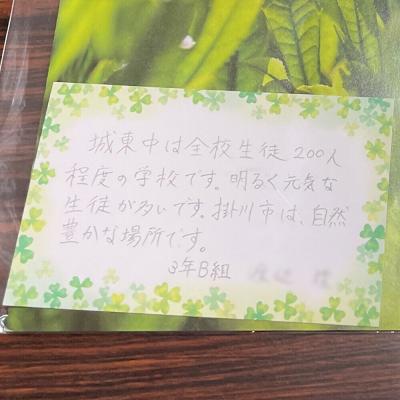 城東中は全校生徒200人
程度の学校です。明るく元気な
生徒が多いです。掛川市は、自然
豊かな場所です。
3年B組